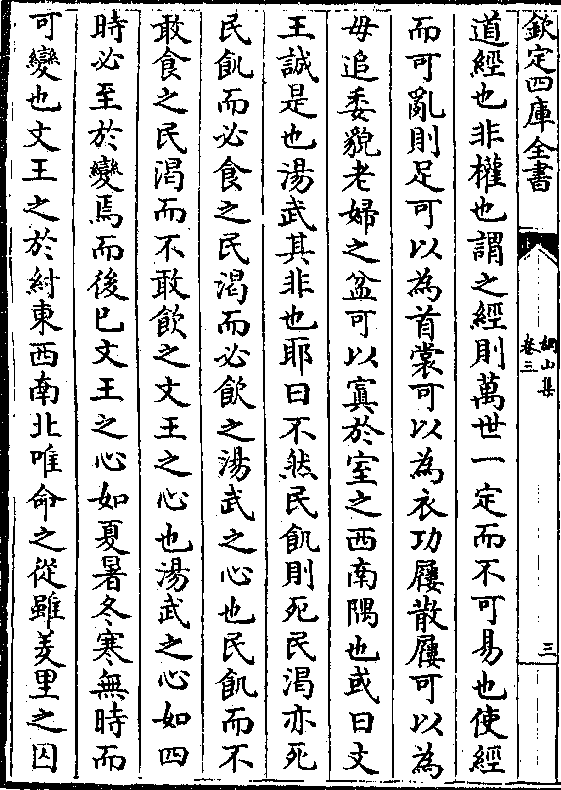 欽定四庫全書
網山集
卷三
三
道經也非權也謂之經則萬世一定而不可易也使經
而可亂則足可以為首裳可以為衣功屨散屨可以為
毋追委貌老婦之盆可以寘於室之西南隅也或曰文
王誠是也湯武其非也耶曰不然民飢則死民渴亦死
民飢而必食之民渴而必飲之湯武之心也民飢而不
敢食之民渴而不敢飲之文王之心也湯武之心如四
時必至於變焉而後已文王之心如夏暑冬寒無時而
可變也文王之於紂東西南北唯命之從雖羑里之囚